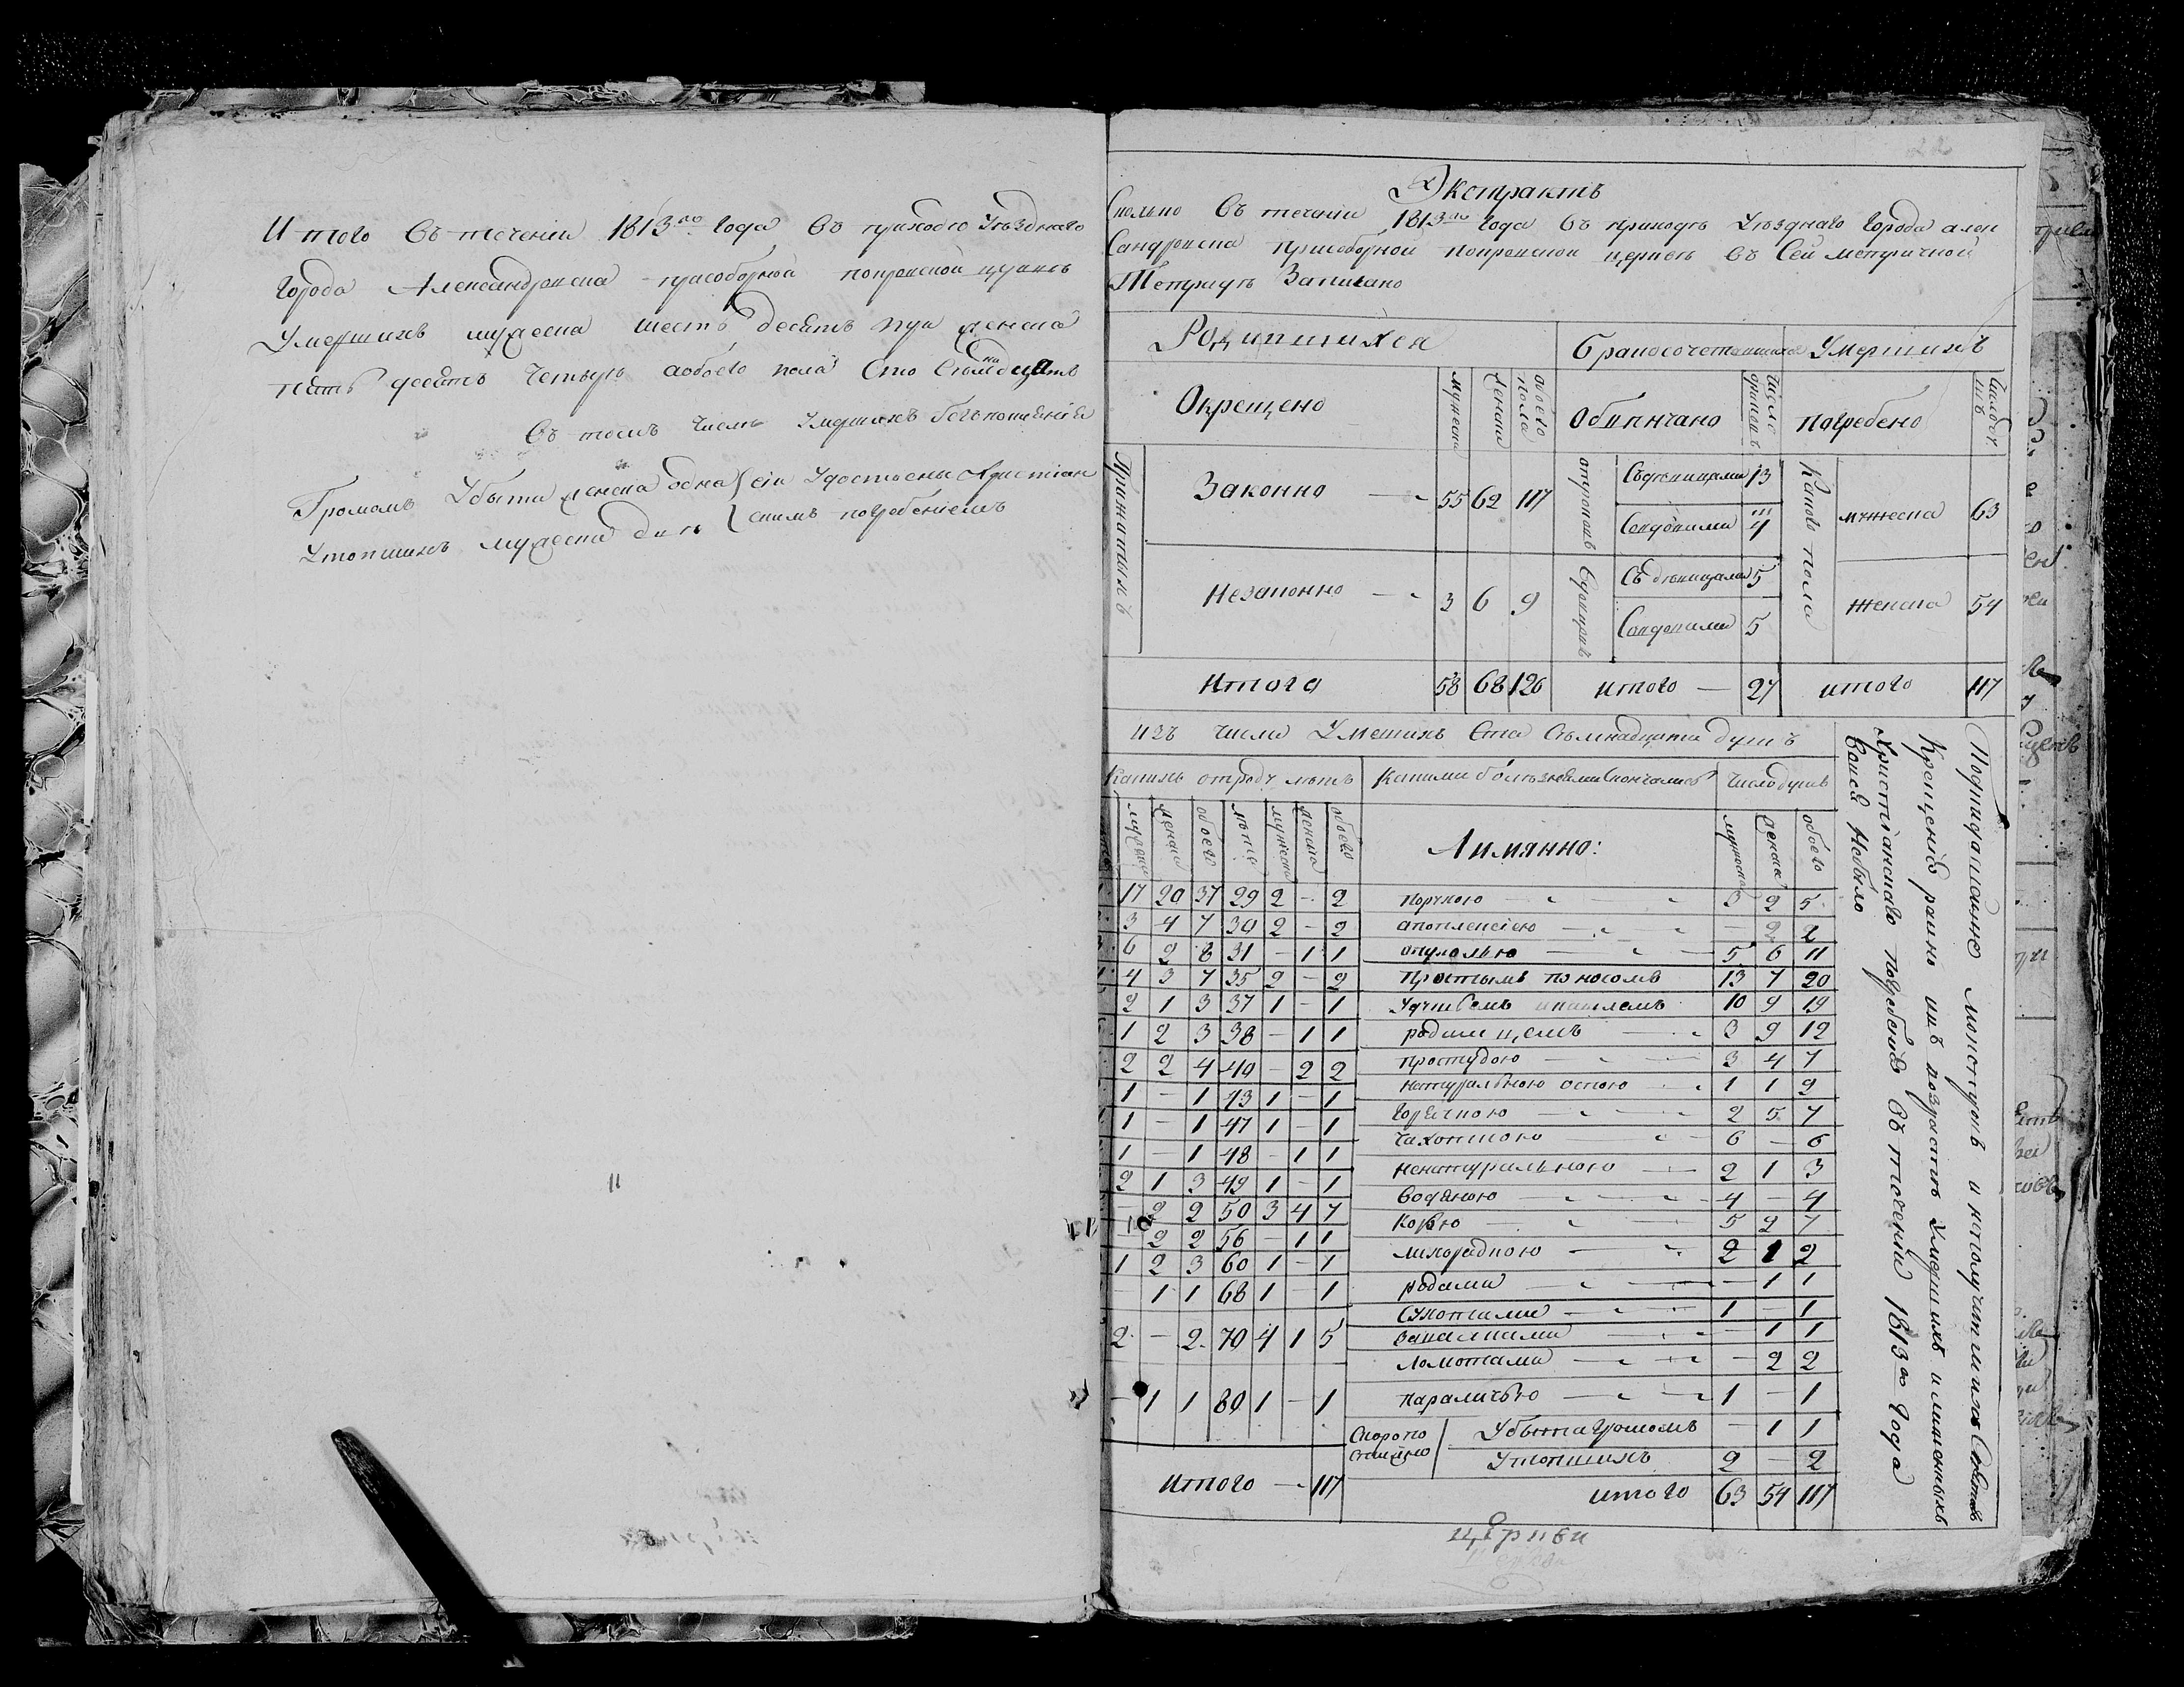 Итого Въ течении 1813го года Въ приходѣ Уѣзднаго
города Александровска присоборной покровской церквѣ
Умершихъ мужеска шесть десятъ три женска
пять десятъ четыре аобоего пола Сто Сѣмнадцать
Въ томъ числѣ Умершихъ безъ покаянія
Громомъ Убыта женска одна сіи Удостоены Христіан
Утопшихъ мужеска два скимъ погребеніемъ
22
Экстрактъ
Сколько Въ течении 1813го года Въ приходѣ Уѣзднаго Города алек
Сандровска присоборной покровской церквѣ Въ Сей метричной
Тетрадѣ Записано
Родившихся Бракосочетавшихся Умершихъ
Окрещено мужеска женска обоего пола Обвѣнчано Число браковъ погребено Число душъ
Законно 55 62 117 Съ дѣвицами 13 Каковъ пола мужеска 63
Совдовими 4
Незаконно 3 6 9 Съ дѣвицами 5 женска 54
Совдовими 5
Итого 58 68 126 итого 27 итого 117
изъ числа Умешихъ Ста Сѣмнадцати душъ
Какихъ отроду лѣтъ Какими болѣзнями скончались Число душъ
мужеска женска обоего лѣта мужеска женска обоего Аимянно: мужеска женска обоего
17 20 37 29 2 - 2
3 4 7 30 2 - 2
6 2 8 31 - 1 1
4 3 7 35 2 - 2
2 1 3 37 1 - 1
1 2 3 38 - 1 1
2 2 4 40 - 2 2
1 - 1 43 1 - 1
1 - 1 47 1 - 1
1 - 1 48 - 1 1
2 1 3 49 1 - 1
- 2 2 50 3 4 7
- 2 2 56 - 1 1
1 2 3 60 1 - 1
- 1 1 68 1 - 1
2 - 2 70 4 1 5
- 1 1 80 1 - 1
Итого 117
порчкою 3 2 5
апоплексіею - 2 2
опухолью 5 6 11
простымъ поносомъ 13 7 20
Удушьемъ икашлемъ 10 9 19
родимицемъ 3 9 12
простудою 3 4 7
натуральною оспою 1 1 2
Горячкою 2 5 7
Чахоткою 6 - 6
ненатурального 2 1 3
Водяною 4 - 4
Корью 5 2 7
лихорадкою 2 1 2
родами - 1 1
Сухотками 1 - 1
- 1 1
Ломотами - 2 2
параличью 1 - 1
Скоропостижно Убыта громомъ - 1 1
Утопшихъ 2 - 2
итого 63 54 117
Крещенію равно ивъ возрастѣ Умершихъ
Христіанскаго погребенія Въ течении 1813го года
Вовсѣ Небыло
церкви